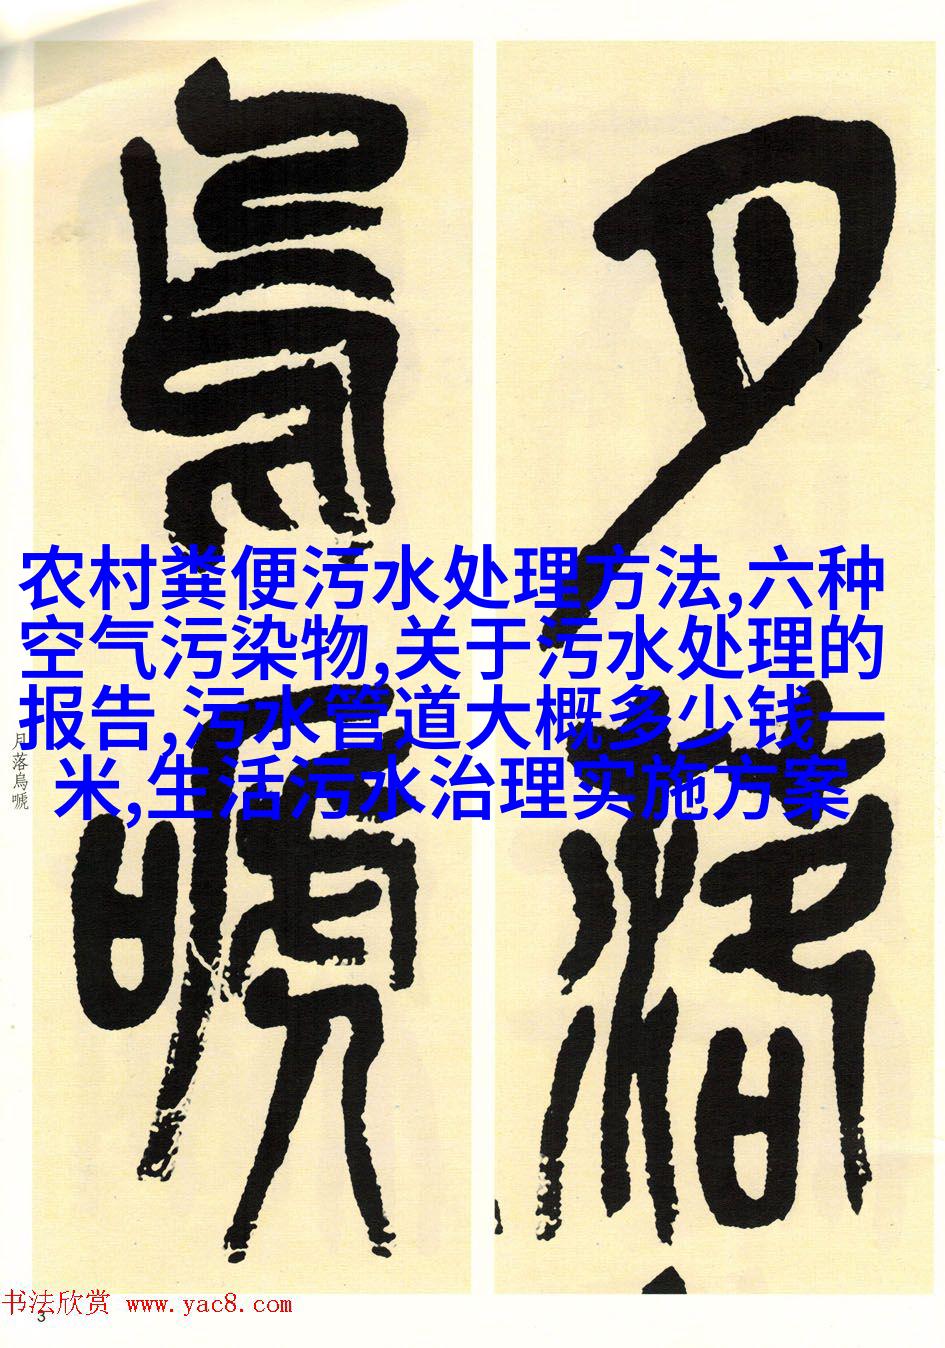 月落
烏嗁
农村粪便污水处理方法,六种
空气污染物,关于污水处理的
报告,污水管道大概多少钱一
米,生活污水治理实施方案
月落烏嗁
书法欣赏 www.yac8.com
3